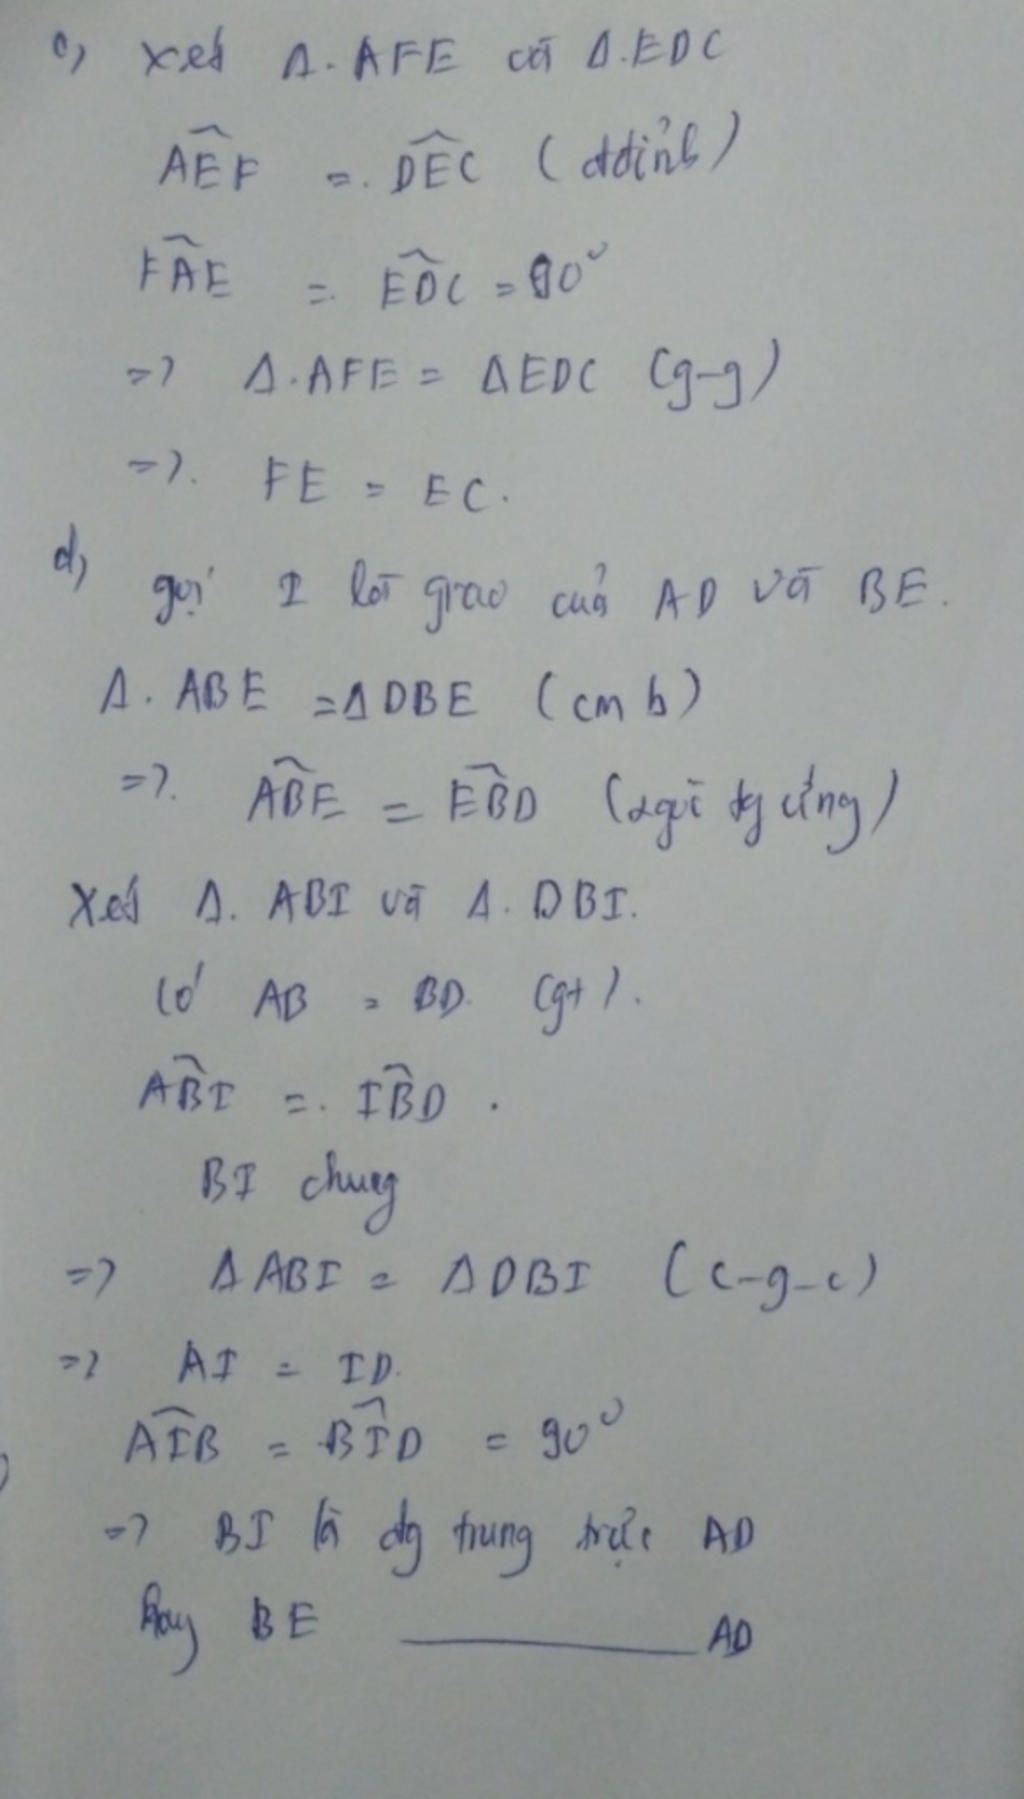 c, xét Δ.AFE và Δ.EDC
AEF = DEC (đđỉnh)
FAE = EDC = 90°
=> Δ.AFE = ΔEDC (g-g)
=> FE = EC.
d, gọi I là giao của AD và BE.
Δ.ABE = ΔDBE (cm b)
=> ABE = EBD (2góc tg ứng)
Xét Δ.ABI và Δ.DBI.
Có AB = BD (gt).
ABI = IBD.
BI chung
=> ΔABI = ΔDBI (c-g-c)
=> AI = ID.
AIB = BID = 90°
=> BI là đg trung trực AD
hay BE ______ AD